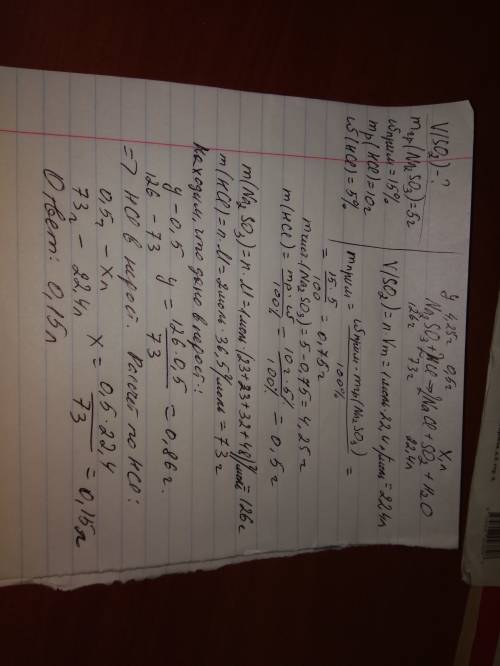 V(SO₂)=?
mтр(Na₂SO₃)=5г
wприм=15%
mр(HCl)=10г
w(HCl)=5%
y 4,25г 0,5г Xл
Na₂SO₃+2HCl=>2NaCl+SO₂+H₂O
126г 73г 22,4л
V(SO₂)=n·Vm=1моль·22,4л/моль=22,4л
mприм=wприм·mтр(Na₂SO₃)/100%=
=15·5/100=0,75г
mчист.(Na₂SO₃)=5-0,75=4,25г
m(HCl)=mр·w/100%=10г·5%/100%=0,5г
m(Na₂SO₃)=n·M=1моль·(23+23+32+48)г/моль=126г
m(HCl)=n·M=2моль·36,5г/моль=73г
Находим, что дано в
y-0,5 y=126·0,5/73=0,86г.
126-73
=> HCl в Расчёт по HCl:
0,5г-Xл X=0,5·22,4/73=0,15л
73г-22,4л
Ответ: 0,15л